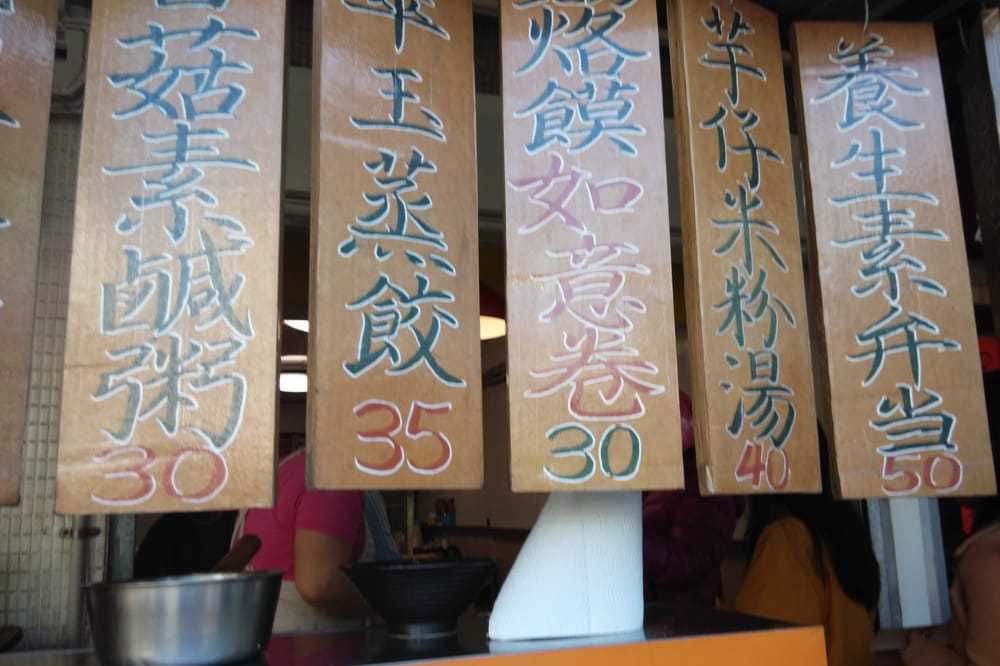 菇素鹹粥
30
玉蒸餃
35
烙饃如意卷
30
芋仔米粉湯
40
養生素弁当
50